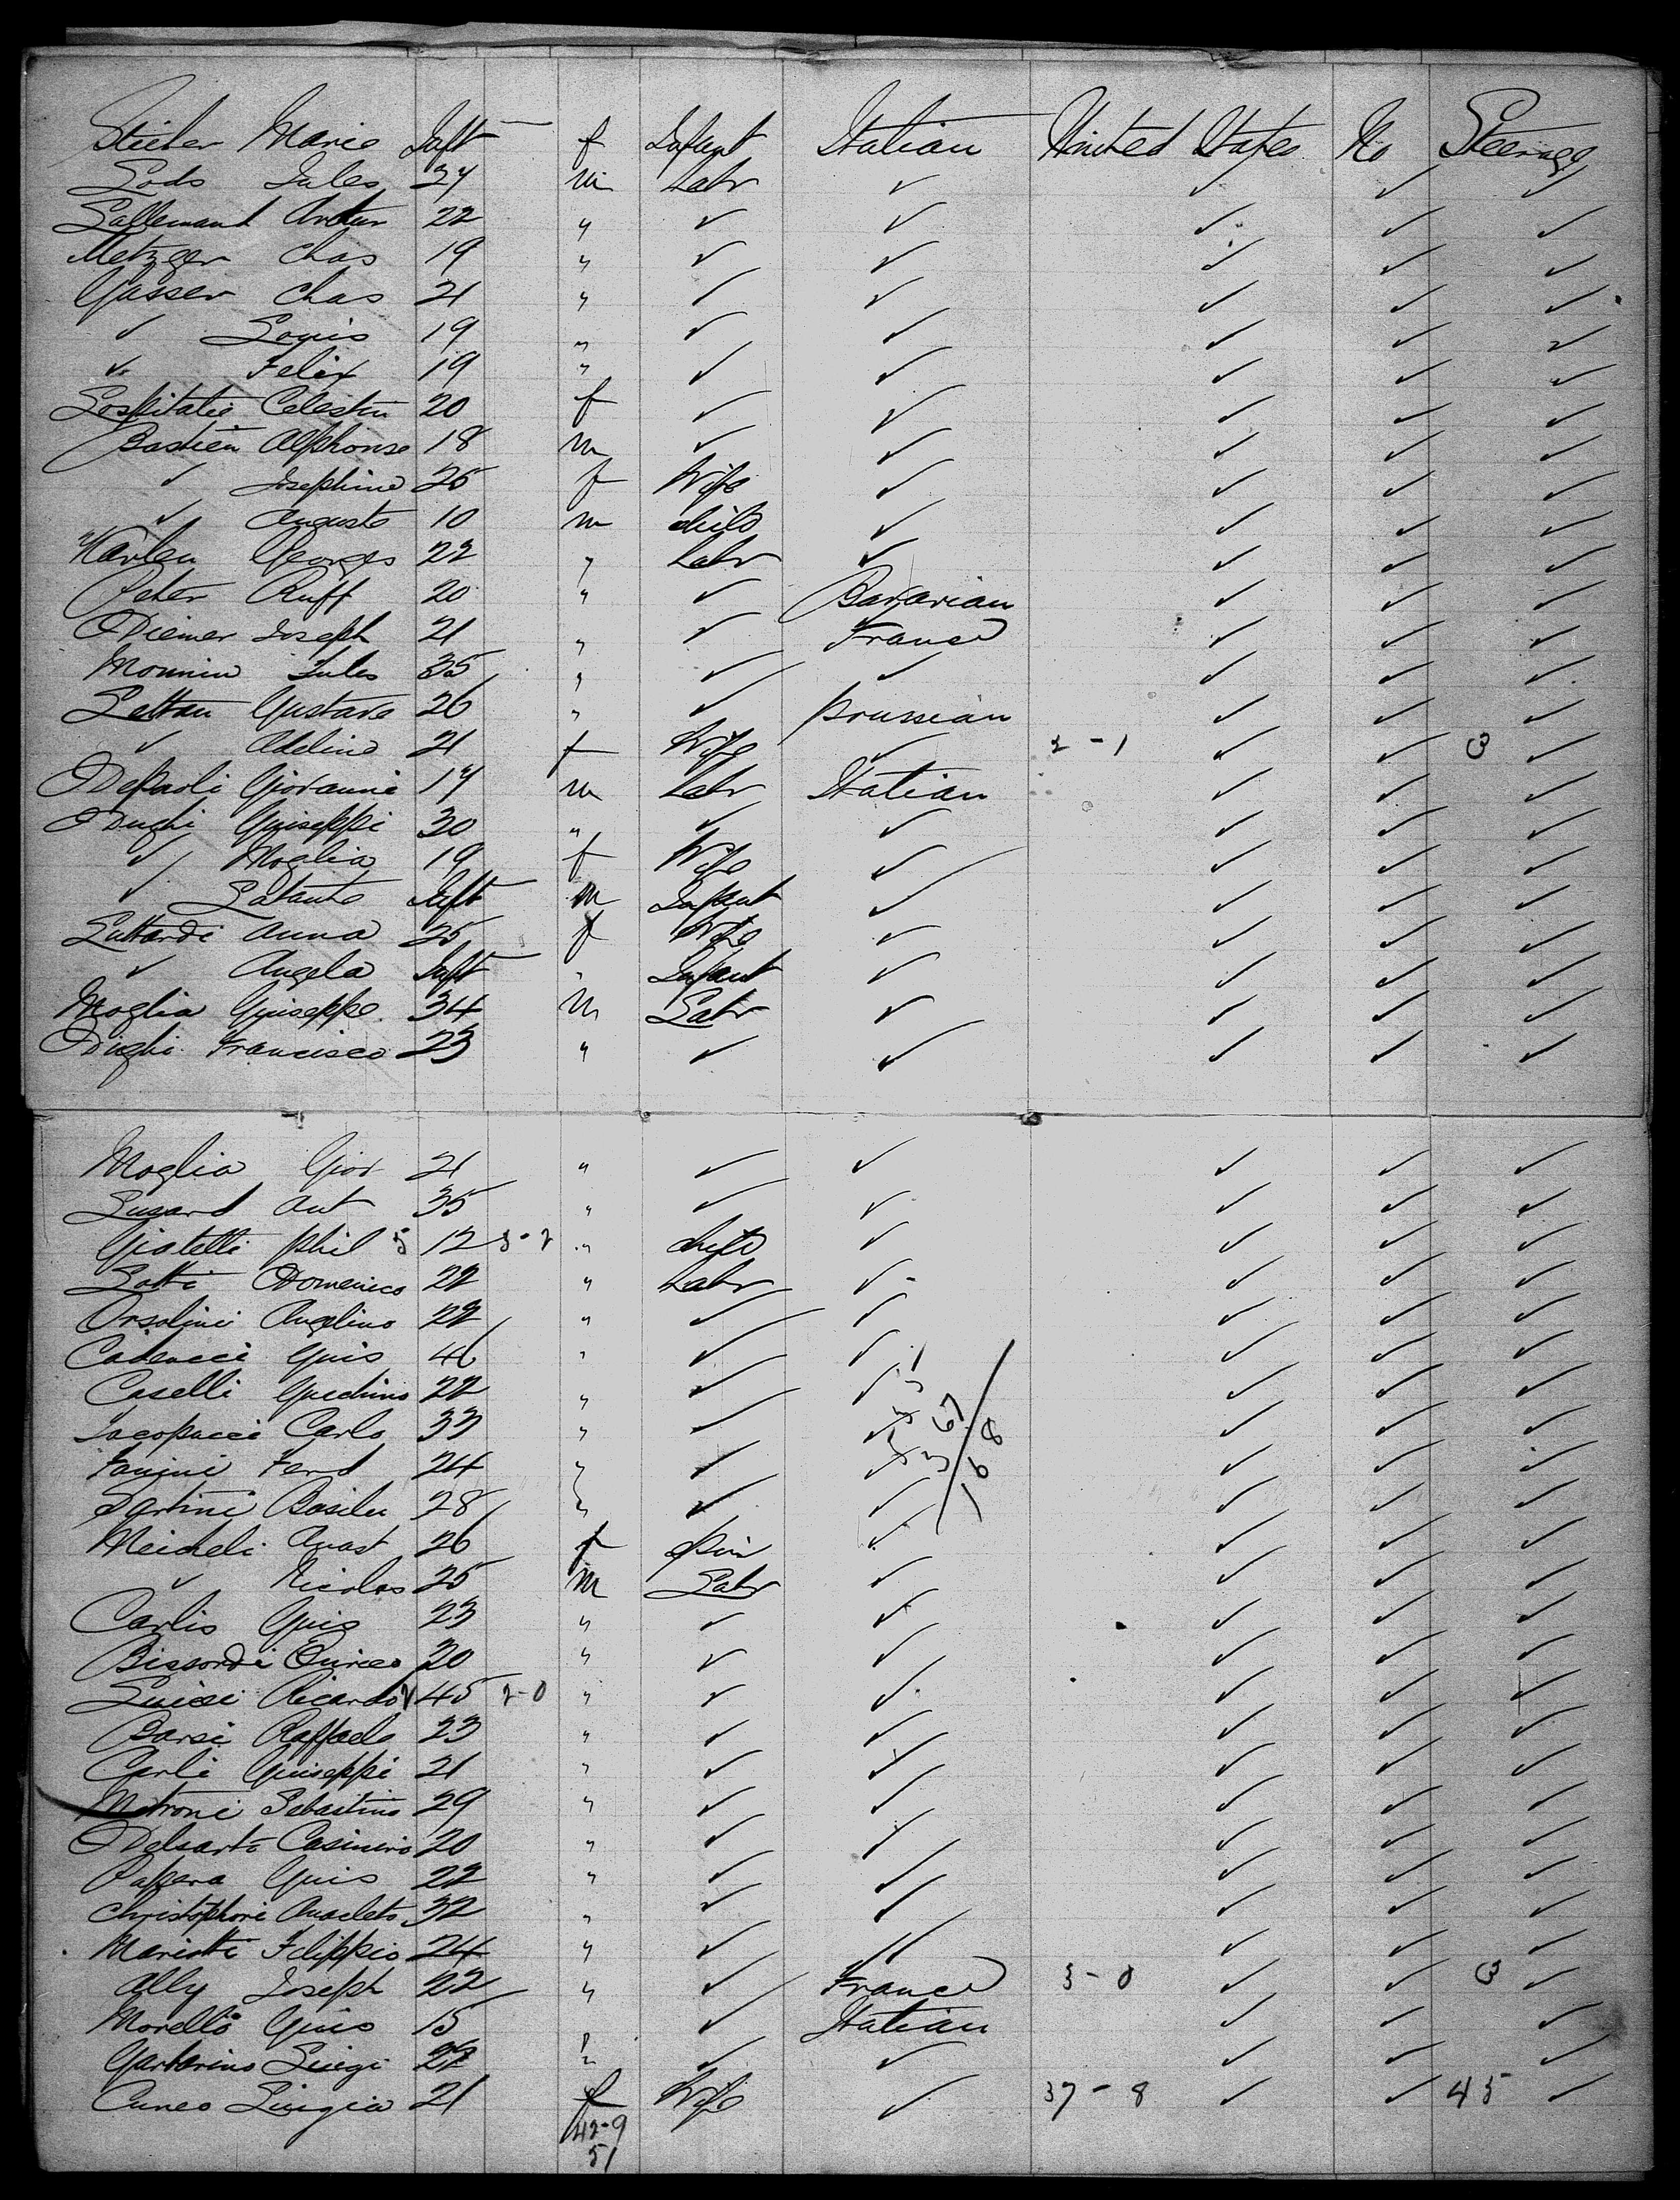 Stieher Marie Inft f Infant Italian United States No Steerage
Sods Jules 27 m Labr ✓ ✓ ✓ ✓
Lallemand Arthur 22 " ✓ ✓ ✓ ✓ ✓
Metzger Chas 19 " ✓ ✓ ✓ ✓ ✓
Gasser Chas 21 " ✓ ✓ ✓ ✓ ✓
✓ Louis 19 " ✓ ✓ ✓ ✓ ✓
✓ Felix 19 " ✓ ✓ ✓ ✓ ✓
Lospitalie Celestin 20 f ✓ ✓ ✓ ✓ ✓
Bastien Alphonse 18 m ✓ ✓ ✓ ✓ ✓
✓ Josephine 25 f Wife ✓ ✓ ✓ ✓
✓ Auguste 10 m child ✓ ✓ ✓ ✓
Harlen Georges 22 " Labr ✓ ✓ ✓ ✓
Peter Ruff 20 " ✓ Bavarian ✓ ✓ ✓
Diemer Joseph 21 " ✓ France ✓ ✓ ✓
Monnin Jules 35 " ✓ ✓ ✓ ✓ ✓
Lettau Gustave 26 " ✓ prussian ✓ ✓ ✓
✓ Adeline 21 f Wife ✓ 2-1 ✓ ✓ 3 ✓
DePaoli Giovanni 17 m Labr Italian ✓ ✓ ✓
Dughi Guiseppi 30 " ✓ ✓ ✓ ✓ ✓
✓ Moglia 19 f Wife ✓ ✓ ✓ ✓
✓ Latante Inft m Infant ✓ ✓ ✓ ✓
Luttardi Anna 25 f Wife ✓ ✓ ✓ ✓
✓ Angela Inft " Infant ✓ ✓ ✓ ✓
Moglia Guiseppe 34 m Labr ✓ ✓ ✓ ✓
Dughi Francisco 23 " ✓ ✓ ✓ ✓ ✓
Moglia Giov 21 " ✓ ✓ ✓ ✓ ✓
Lusard Ant 35 " ✓ ✓ ✓ ✓ ✓
Giatetti Phil 5 12 3-2 " child ✓ ✓ ✓ ✓
Lotti Domenico 22 " Labr ✓ ✓ ✓ ✓
Orsolini Angelino 22 " ✓ ✓ ✓ ✓ ✓
Caducci Guis 46 " ✓ ✓ ✓ ✓ ✓
Caselli Guechino 22 " ✓ ✓ ✓ ✓ ✓
Jacopucci Carlo 33 " ✓ ✓ ✓ ✓ ✓
67
168
Fanini Ferd 24 " ✓ ✓ ✓ ✓ ✓
Sartini Basilu 28 " ✓ ✓ ✓ ✓ ✓
Meicheli Anast 26 f Spin ✓ ✓ ✓ ✓
✓ Nicolas 25 m Labr ✓ ✓ ✓ ✓
Carlis Guis 23 " ✓ ✓ ✓ ✓ ✓
Bissordi Quirico 20 " ✓ ✓ ✓ ✓ ✓
Luiesi Ricardo 2 45 2-0 " ✓ ✓ ✓ ✓ ✓
Barsi Raffaelo 23 " ✓ ✓ ✓ ✓ ✓
Carli Guiseppi 21 " ✓ ✓ ✓ ✓ ✓
Motroni Sebastino 29 " ✓ ✓ ✓ ✓ ✓
Delsarto Casimiro 20 " ✓ ✓ ✓ ✓ ✓
Papera Guis 22 " ✓ ✓ ✓ ✓ ✓
Christophori Anacleto 32 " ✓ ✓ ✓ ✓ ✓
Mariotti Filippio 24 " ✓ ✓ ✓ ✓ ✓
Ally Joseph 22 " ✓ France 3-0 ✓ ✓ 3 ✓
Morello Guis 15 " ✓ Italian ✓ ✓ ✓
Garbarino Luigi 22 " ✓ ✓ ✓ ✓ ✓
Cuneo Luigia 21 f Wife ✓ 37-8 ✓ ✓ 45 ✓
42-9
51